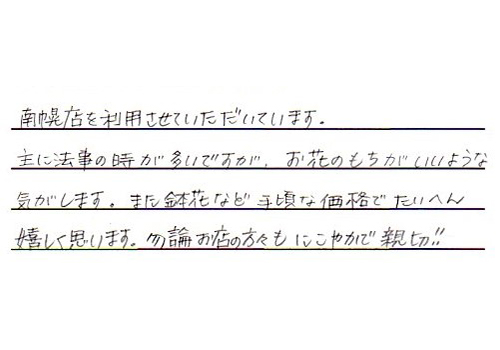 南幌店を利用させていただいています。
主に法事の時が多いですが、お花のもちがいいような
気がします。また鉢花など手頃な価格でたいへん
嬉しく思います。勿論お店の方々もにこやかで親切!!